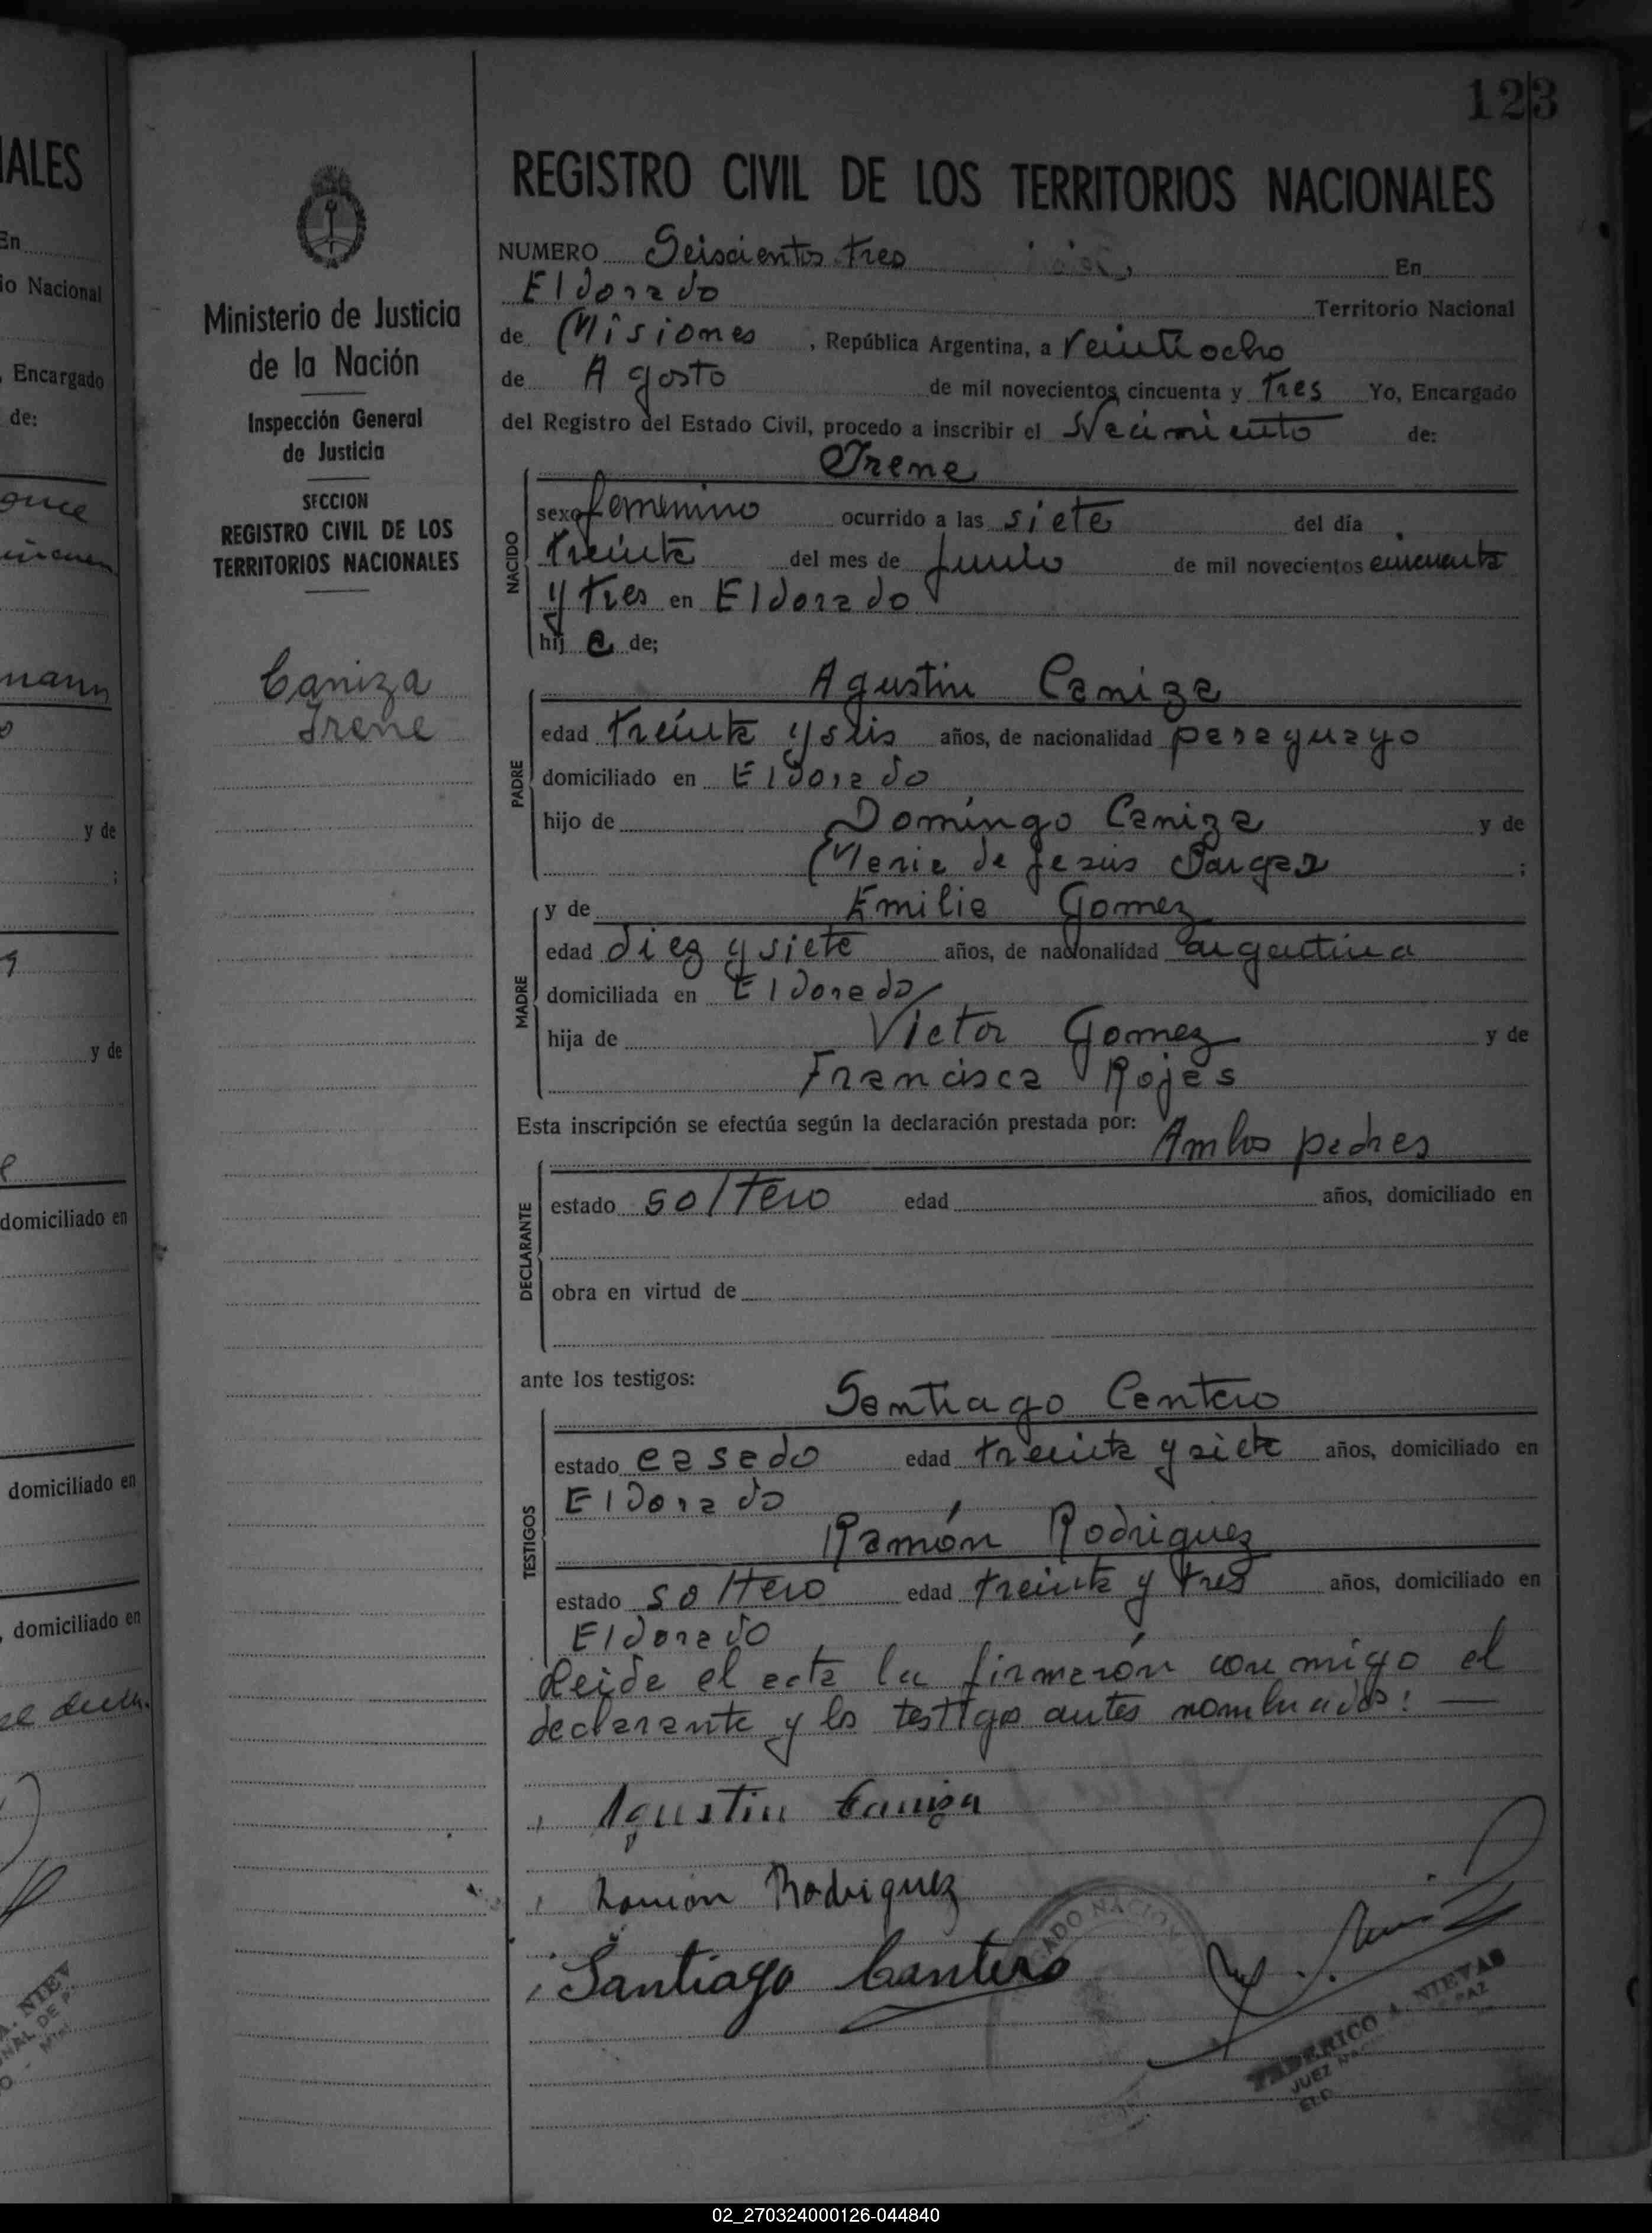 123
REGISTRO CIVIL DE LOS TERRITORIOS NACIONALES
NUMERO Seiscientos tres En
Eldorado Territorio Nacional
de Misiones , República Argentina, a veintiocho
de Agosto de mil novecientos cincuenta y tres Yo, Encargado
del Registro del Estado Civil, procedo a inscribir el Nacimiento de:
Irene
NACIDO
sexo femenino ocurrido a las siete del día
treinta del mes de Junio de mil novecientos cincuenta
y tres en Eldorado
hij a de;
Agustin Caniza
PADRE
edad treinta y seis años, de nacionalidad paraguayo
domiciliado en Eldorado
hijo de Domingo Caniza y de
Maria de Jesús ;
y de Emilia Gomez
MADRE
edad diez y siete años, de nacionalidad argentina
domiciliada en Eldorado
hija de Victor Gomez y de
Francisca Rojas
Esta inscripción se efectúa según la declaración prestada por: Ambos padres
DECLARANTE
estado soltero edad años, domiciliado en
obra en virtud de
ante los testigos:
Santiago Centero
TESTIGOS
estado casado edad treinta y siete años, domiciliado en
Eldorado
Ramón Rodriguez
estado soltero edad treinta y tres años, domiciliado en
Eldorado
Leida el acta la firmarón conmigo el
declarante y los testigos antes nombrados: —
Agustin Caniza
Ramon Rodriguez
Santiago Cantero
FEDERICO A. NIEVAS
JUEZ PAZ
ELD
Ministerio de Justicia
de la Nación
Inspección General
de Justicia
SECCION
REGISTRO CIVIL DE LOS
TERRITORIOS NACIONALES
Caniza
Irene
IALES
En
io Nacional
, Encargado
de:
y de
;
y de
domiciliado en
domiciliado en
, domiciliado en
02_270324000126-044840